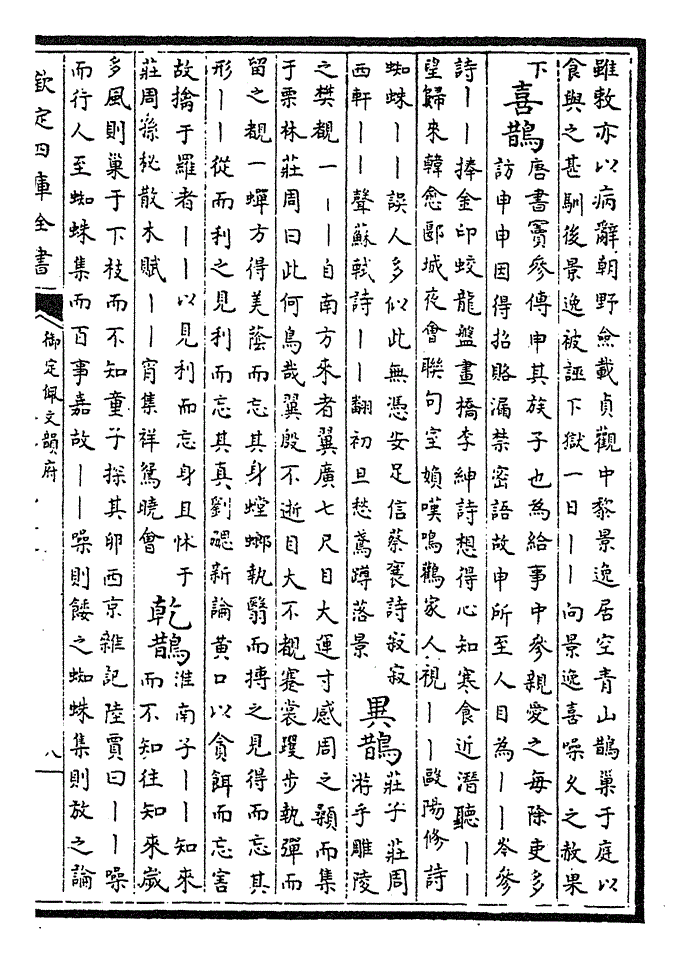 雖敕亦以病辭朝野僉載貞觀中黎景逸居空青山鵲巢于庭以
食與之甚馴後景逸被誣下獄一日丨丨向景逸喜噪久之赦果
下
喜鵲
唐書竇參傳申其族子也為給事中參親愛之每除吏多
訪申申因得招賂漏禁密語故申所至人目為丨丨岑參
詩丨丨捧金印蛟龍盤畫橋李紳詩想得心知寒食近潛聽丨丨
望歸來韓愈郾城夜會聯句室嬪嘆鳴鸛家人視丨丨歐陽修詩
蜘蛛丨丨誤人多似此無憑安足信蔡襄詩寂寂
西軒丨丨聲蘇軾詩丨丨翻初旦愁鳶蹲落景
異鵲
莊子莊周
游乎雕陵
之樊覩一丨丨自南方來者翼廣七尺目大運寸感周之顙而集
于栗林莊周曰此何鳥哉翼殷不逝目大不覩蹇裳躩步執彈而
留之覩一蟬方得美蔭而忘其身螳螂執翳而搏之見得而忘其
形丨丨從而利之見利而忘其真劉勰新論黃口以貪餌而忘害
故擒于羅者丨丨以見利而忘身且怵于
莊周孫柲散木賦丨丨宵集祥鴛曉會
乾鵲
淮南子丨丨知來
而不知往知來歲
多風則巢于下枝而不知童子探其卵西京雜記陸賈曰丨丨噪
而行人至蜘蛛集而百事嘉故丨丨噪則餧之蜘蛛集則放之論
欽定四庫全書
御定佩文韻府
八